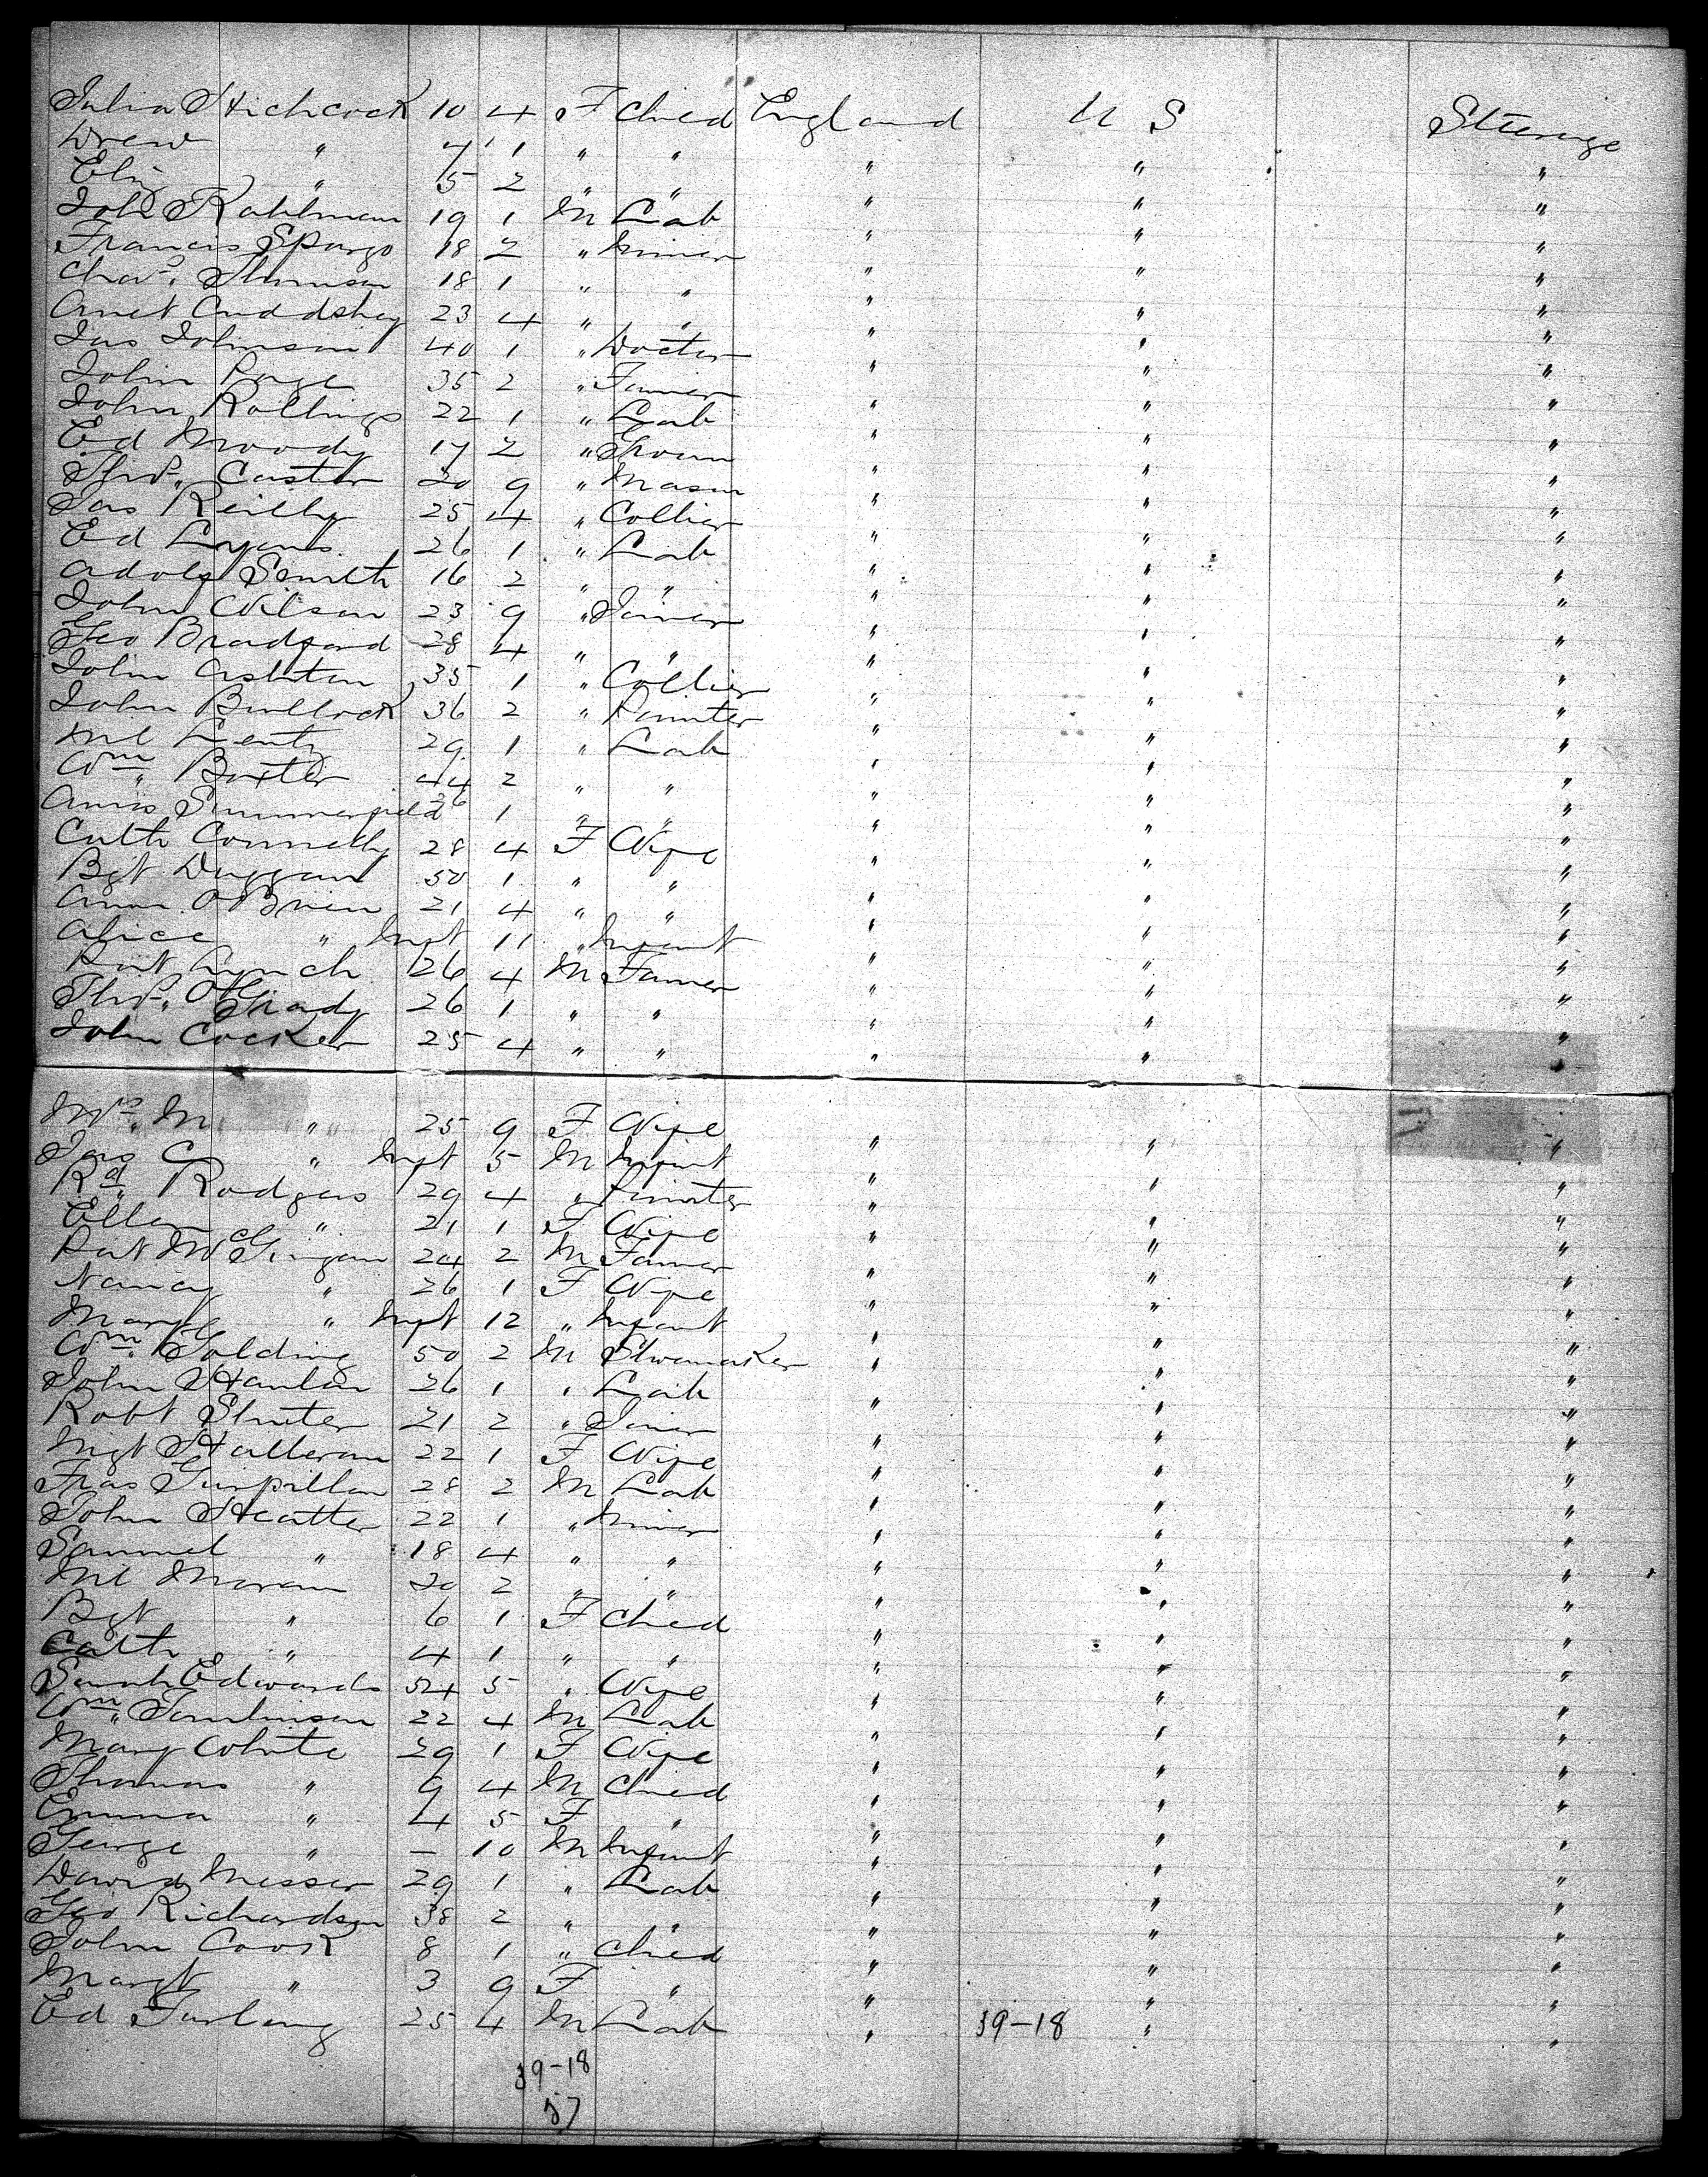 Julia Hichcock 10 4 F Child England U S Steerage
Drew " 7 1 " " " " "
Eliz " 5 2 " " " " "
John Kahlman 19 1 M Lab " " "
Francis Spargo 18 2 " Miner " " "
Chas. 18 1 " " " " "
23 4 " " " " "
Jas Johnson 40 1 " Docter " " "
John Page 35 2 " Farmer " " "
John Rollings 22 1 " Lab " " "
Ed Moody 17 2 " Groom " " "
Thos. Caster 20 9 " Mason " " "
Jas Reilly 25 4 " Collier " " "
Ed Lyons 26 1 " Lab " " "
Adolf Smith 16 2 " " " " "
John Wilson 23 9 " Joiner " " "
Geo Bradford 28 4 " " " " "
John Ashton 35 1 " Collier " " "
John Bullock 36 2 " Painter " " "
Ml 29 1 " Lab " " "
Wm Baxter 44 2 " " " " "
Amos Summerfield 26 1 " " " " "
Cath Connelly 28 4 F Wife " " "
Bgt Duggan 50 1 " " " " "
Ann O'Brien 21 4 " " " " "
Alice " Inft 11 " Infant " " "
Pat Lynch 26 4 M Farmer " " "
Thos. O'Grady 26 1 " " " " "
John Cocker 25 4 " " " " "
Mrs. M " 25 9 F Wife " " "
Jas C " Inft 5 M Infant " " "
Rd Rodgers 29 4 " Painter " " "
Ellen " 21 1 F Wife " " "
Pat McGuigan 24 2 M Farmer " " "
Nancy " 26 1 F Wife " " "
Mary " Inft 12 " Infant " " "
Wm Golding 50 2 M Shoemaker " " "
John Hanlan 26 1 " Lab " " "
Robt Sluter 21 2 " Joiner " " "
Mgt Halleran 22 1 F Wife " " "
Fras 28 2 M Lab " " "
John Heatter 22 1 " Miner " " "
Samuel " 18 4 " " " " "
Ml Moran 20 2 " " " " "
Bgt " 6 1 F Child " " "
Cath " 4 1 " " " " "
Sarah Edwards 54 5 " Wife " " "
Wm Tomlinson 22 4 M Lab " " "
Mary White 29 1 F Wife " " "
Thomas " 9 4 M Child " " "
Emma " 4 5 F " " " "
George " — 10 M Infant " " "
David Messer 29 1 " Lab " " "
Geo Richardson 38 2 " " " " "
John Cook 8 1 " Child " " "
Margt " 3 9 F " " " "
Ed Furlong 25 4 M Lab " 39-18 " "
39-18
57